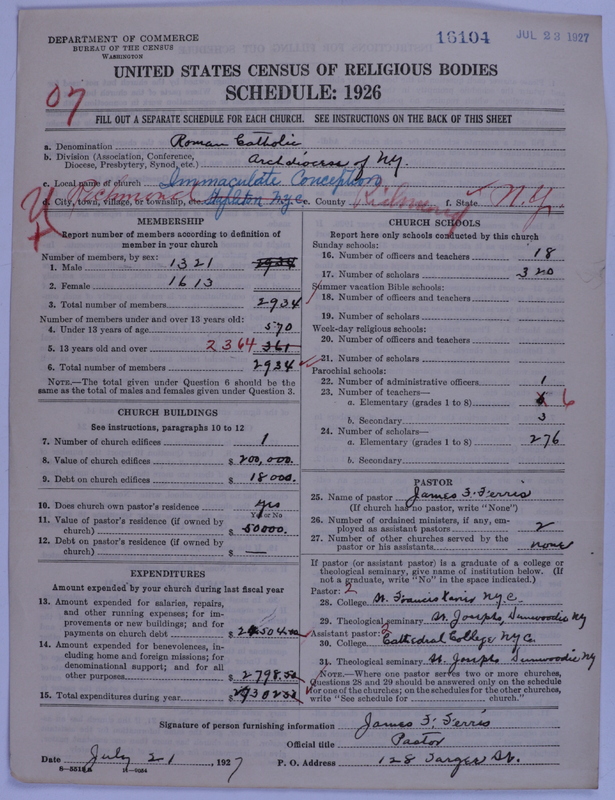 DEPARTMENT OF COMMERCE
BUREAU OF THE CENSUS
WASHINGTON
16104
JUL 23 1927
UNITED STATES CENSUS OF RELIGIOUS BODIES
SCHEDULE: 1926
07
FILL OUT A SEPARATE SCHEDULE FOR EACH CHURCH. SEE INSTRUCTIONS ON THE BACK OF THIS SHEET
a. Denomination Roman Catholic
b. Division (Association, Conference, Diocese, Presbytery, Synod, etc.) Archdiocese of N.Y.
c. Local name of church Immaculate Conception
d. City, town, village, or township, etc. Stapleton N.Y.C. e. County Richmond f. State N.Y.
MEMBERSHIP
Report number of members according to definition of
member in your church
Number of members, by sex:
1. Male 1321
2. Female 1613
3. Total number of members 2934
Number of members under and over 13 years old:
4. Under 13 years of age 570
5. 13 years old and over 2364 361
6. Total number of members 2934
NOTE.—The total given under Question 6 should be
same as the total of males and females given under Question 3.
CHURCH BUILDINGS
See instructions, paragraphs 10 to 12
7. Number of church edifices 1
8. Value of church edifices $ 200,000.
9. Debt on church edifices $ 18000.
10. Does church own pastor's residence yes
Yes or No
11. Value of pastor's residence (if owned by
church) $ 50000.
12. Debt on pastor's residence (if owned by
church) $ —
EXPENDITURES
Amount expended by your church during last fiscal year
13. Amount expended for salaries, repairs,
and other running expenses; for improvements or new buildings; and for
payments on church debt $
14. Amount expended for benevolences, including home and foreign missions; for
denominational support; and for all
other purposes $ 2798.52
15. Total expenditures during year $
CHURCH SCHOOLS
Report here only schools conducted by this church
Sunday schools:
16. Number of officers and teachers 18
17. Number of scholars 320
Summer vacation Bible schools:
18. Number of officers and teachers
19. Number of scholars
Week-day religious schools:
20. Number of officers and teachers
21. Number of scholars
Parochial schools:
22. Number of administrative officers 1
23. Number of teachers—
a. Elementary (grades 1 to 8) 6
b. Secondary 3
24. Number of scholars—
a. Elementary (grades 1 to 8) 276
b. Secondary
PASTOR
25. Name of pastor James F. Ferris
(If church has no pastor, write "None")
26. Number of ordained ministers, if any, employed as assistant pastors 2
27. Number of other churches served by the
pastor or his assistants none
If pastor (or assistant pastor) is a graduate of a college or
theological seminary, give name of institution below. (If
not a graduate, write "No" in the space indicated.)
Pastor: 2
28. College St. Francis Xavier N.Y.C.
29. Theological seminary St. Josephs, Dunwoodie NY
Assistant pastor: 2
30. College Cathedral College N.Y.C.
31. Theological seminary St. Josephs Dunwoodie NY
NOTE.—Where one pastor serves two or more churches,
Questions 28 and 29 should be answered only on the schedule
for one of the churches; on the schedules for the other churches,
write "See schedule for church."
Signature of person furnishing information James F. Ferris
Official title Pastor
Date July 21, 1927 P. O. Address 128 Targee St.
8—5519a 11—9054